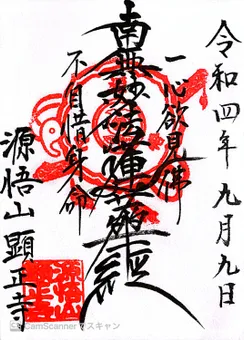 令和四年 九月九日
一心欲見佛
南無妙法蓮華経
不自惜身命
源悟山 顕正寺
CamScanner でスキャン